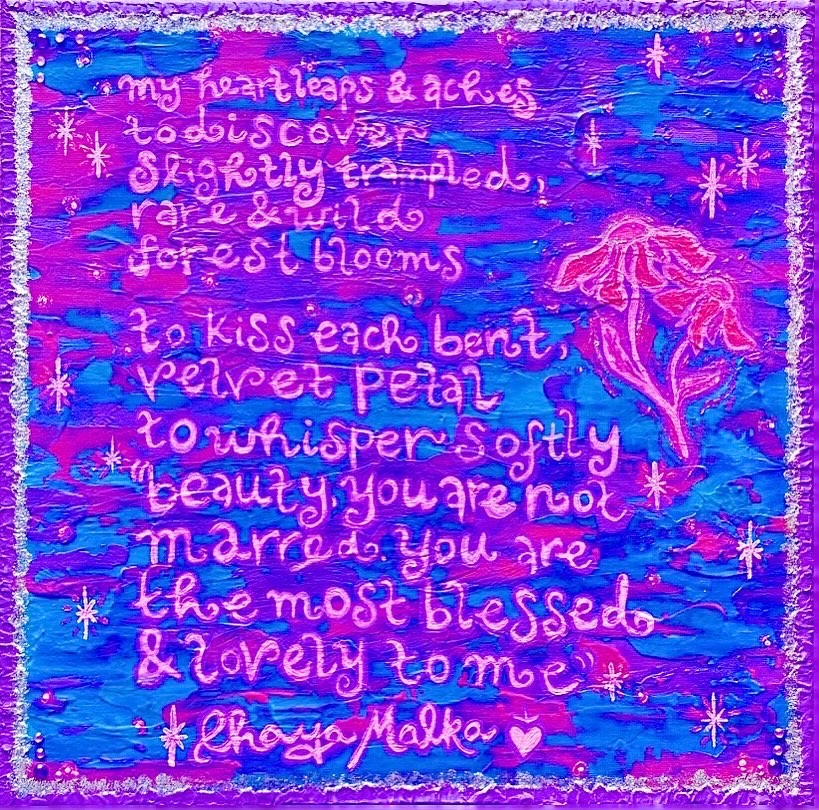 my heart leaps & aches
to discover
slightly trampled,
rare & wild
forest blooms
to kiss each bent,
velvet petal
to whisper softly
"beauty, you are not
marred. you are
the most blessed
& lovely to me"
Chaya Malka